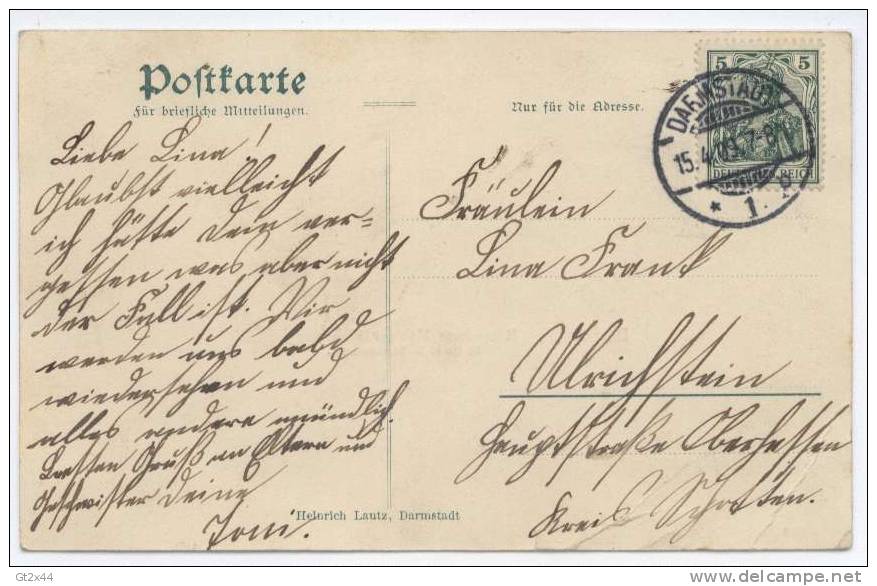 Postkarte
Für briefliche Mitteilungen.
Nur für die Adresse.
5 5
DARMSTADT
15.4.09.7-8N
DEUTSCHES REICH
* 1. P
Liebe Lina!
Glaubst vielleicht
ich hätte Dein ver=
gessen was aber nicht
der Fall ist. Wir
werden uns bald
wiedersehen und
alles andere mündlich.
Besten Gruß an Eltern und
Geschwister Deine
Toni.
Fräulein
Lina Frank
Ulrichstein
Hauptstraße Oberhessen
Kreis Schotten.
Heinrich Lautz, Darmstadt
Gt2x44
delcampe.net